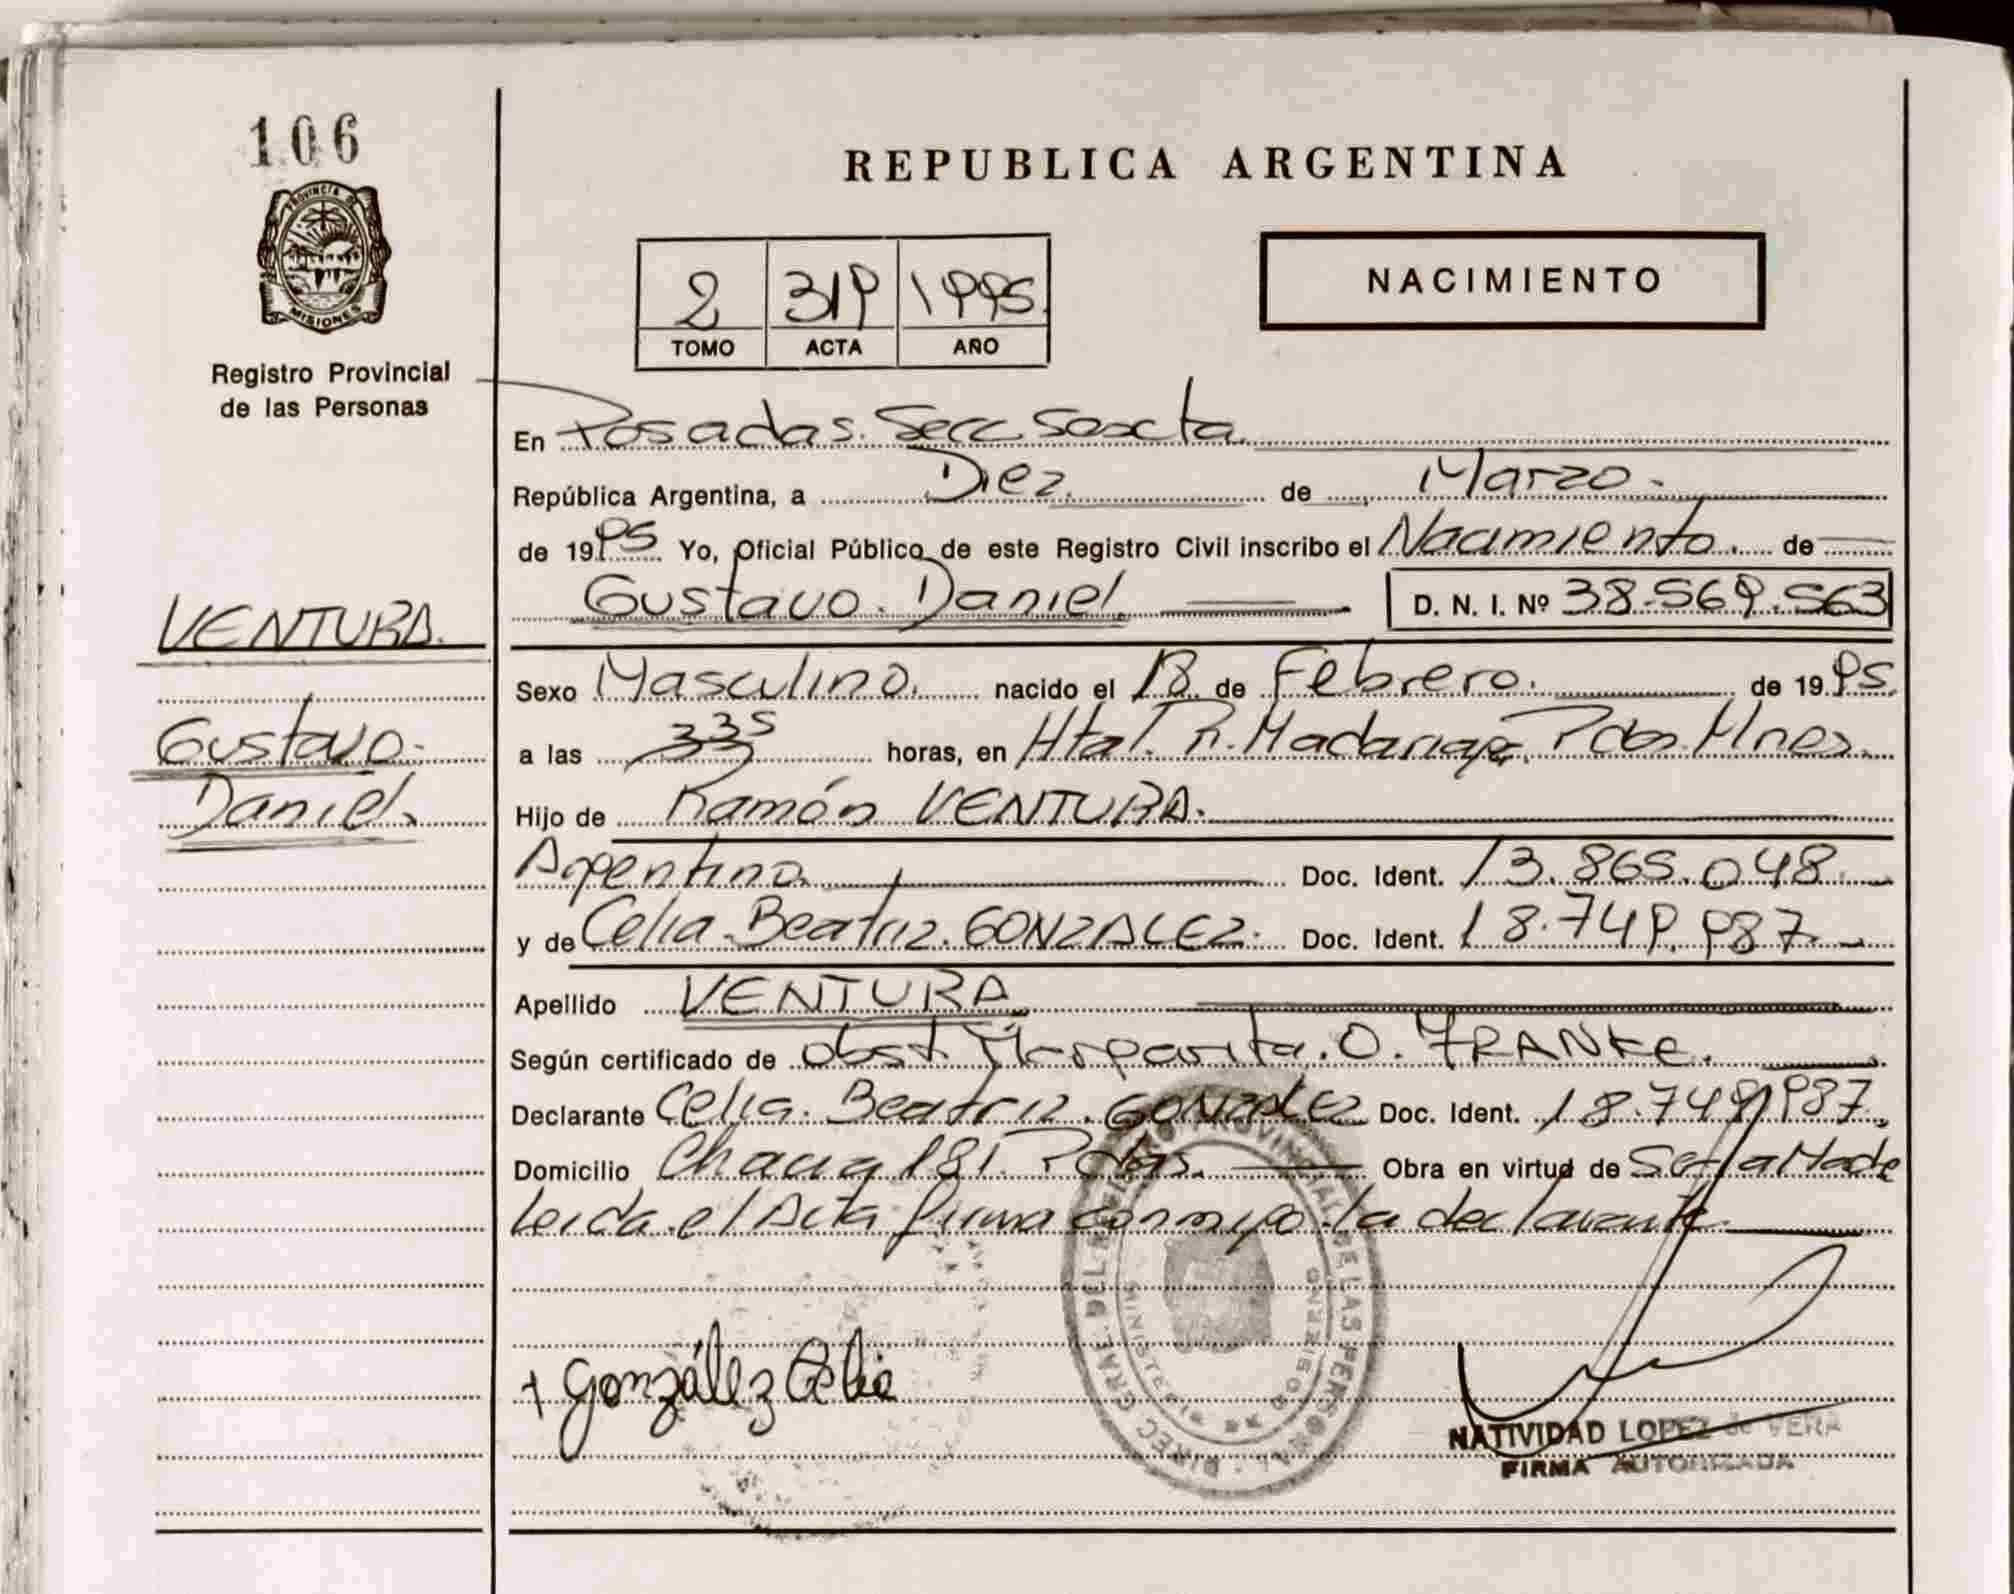 106
PROVINCIA DE
MISIONES
Registro Provincial
de las Personas
REPUBLICA ARGENTINA
2 319 1995.
TOMO ACTA AÑO
NACIMIENTO
En Posadas. Secc. Sexcta
República Argentina, a Diez. de Marzo.
de 1995 Yo, Oficial Público de este Registro Civil inscribo el Nacimiento. de
Gustavo. Daniel. D. N. I. Nº 38.569.563
VENTURA.
Gustavo.
Daniel.
Sexo Masculino. nacido el 18. de Febrero. de 1995.
a las 335 horas, en Htal. R. Madariaga. Pdas. Mnes.
Hijo de Ramón VENTURA.
Argentino. Doc. Ident. 13.865.048
y de Celia. Beatriz. GONZALEZ. Doc. Ident. 18.749.987
Apellido VENTURA
Según certificado de obst. Margarita. O. FRANKE.
Declarante Celia. Beatriz. GONZALEZ Doc. Ident. 18.749.987.
Domicilio Chacra 181. Pdas. Obra en virtud de Ser la Madre
Leida el Acta firma conmigo la declarante.
DIREC. GRAL. DEL REGISTRO PROVINCIAL DE LAS PERSONAS
MINISTERIO DE GOBIERNO
+ González Celia
NATIVIDAD LOPEZ de VERA
FIRMA AUTORIZADA